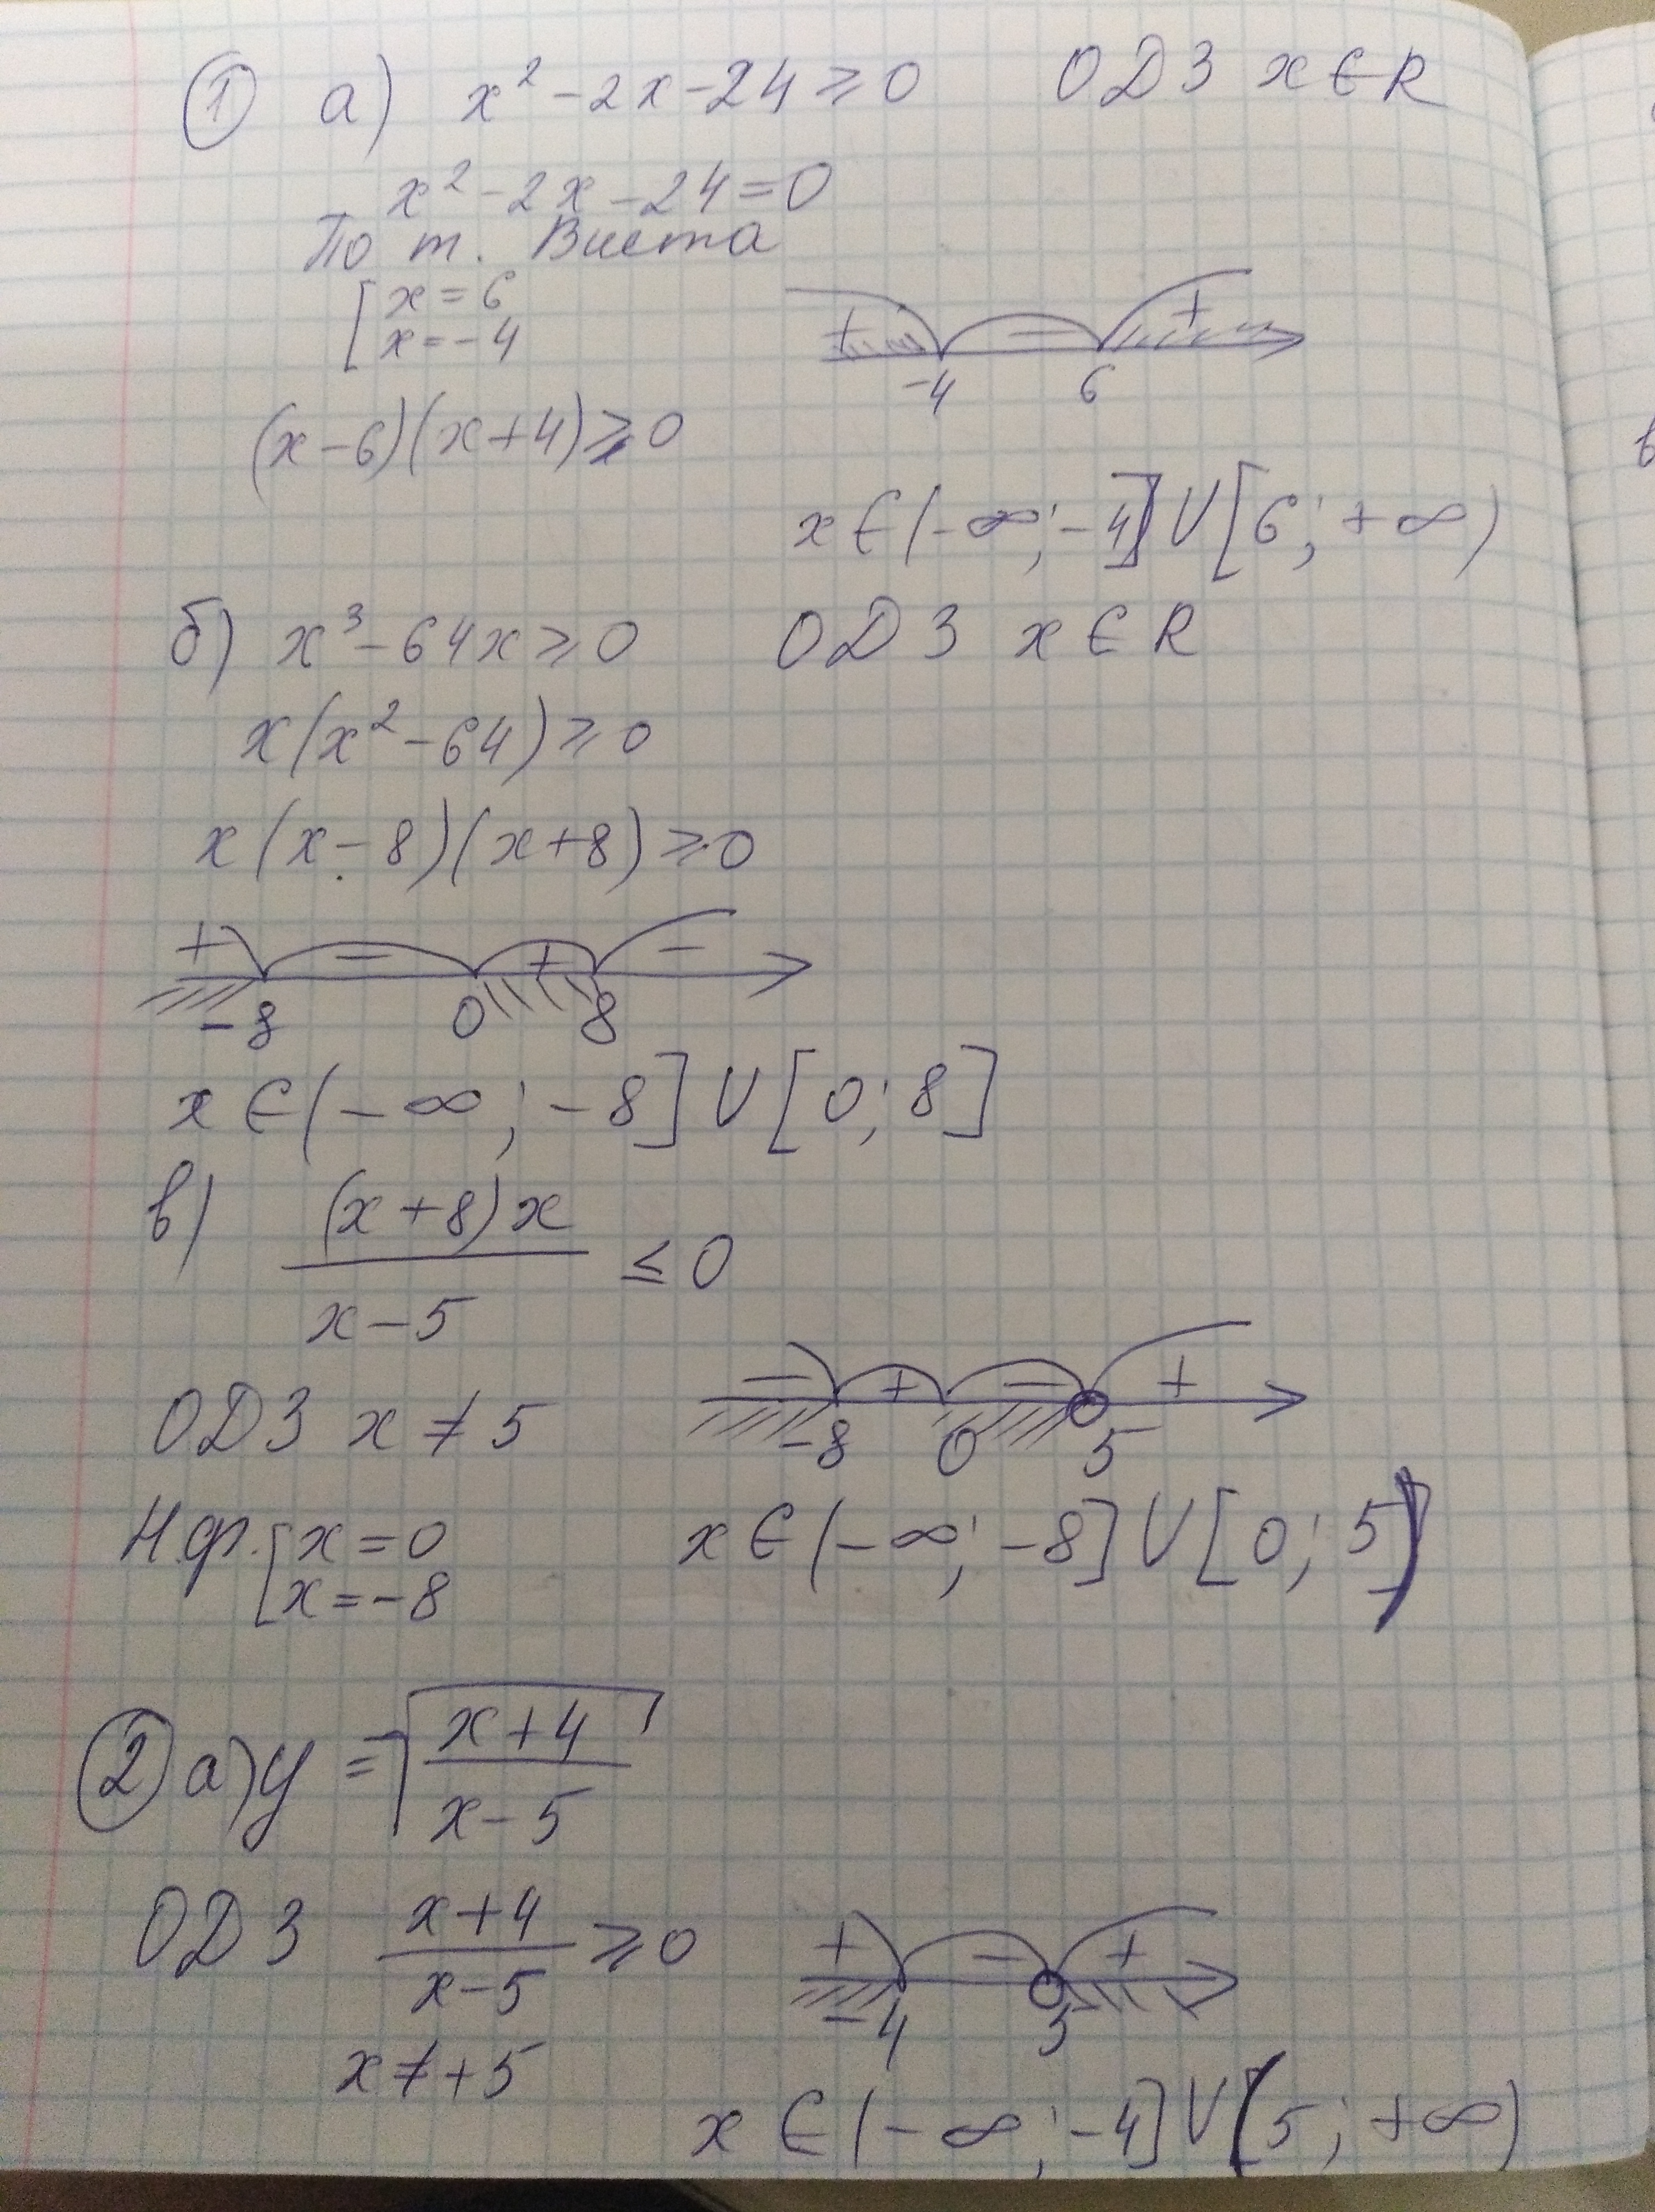 ① а) x² - 2x - 24 ≥ 0 ОДЗ x ∈ R
x² - 2x - 24 = 0
По т. Виета
[ x = 6
x = -4
+ - +
-4 6
(x - 6)(x + 4) ≥ 0
x ∈ (-∞; -4] ∪ [6; +∞)
б) x³ - 64x ≥ 0 ОДЗ x ∈ R
x(x² - 64) ≥ 0
x(x - 8)(x + 8) ≥ 0
+ - + -
-8 0 8
x ∈ (-∞; -8] ∪ [0; 8]
в) (x + 8)x / x - 5 ≤ 0
- + - +
-8 0 5
ОДЗ x ≠ 5
Н.ф. [ x = 0
x = -8
x ∈ (-∞; -8] ∪ [0; 5)
② а) y = √(x + 4 / x - 5)
ОДЗ x + 4 / x - 5 ≥ 0
+ - +
-4 5
x ≠ +5
x ∈ (-∞; -4] ∪ (5; +∞)